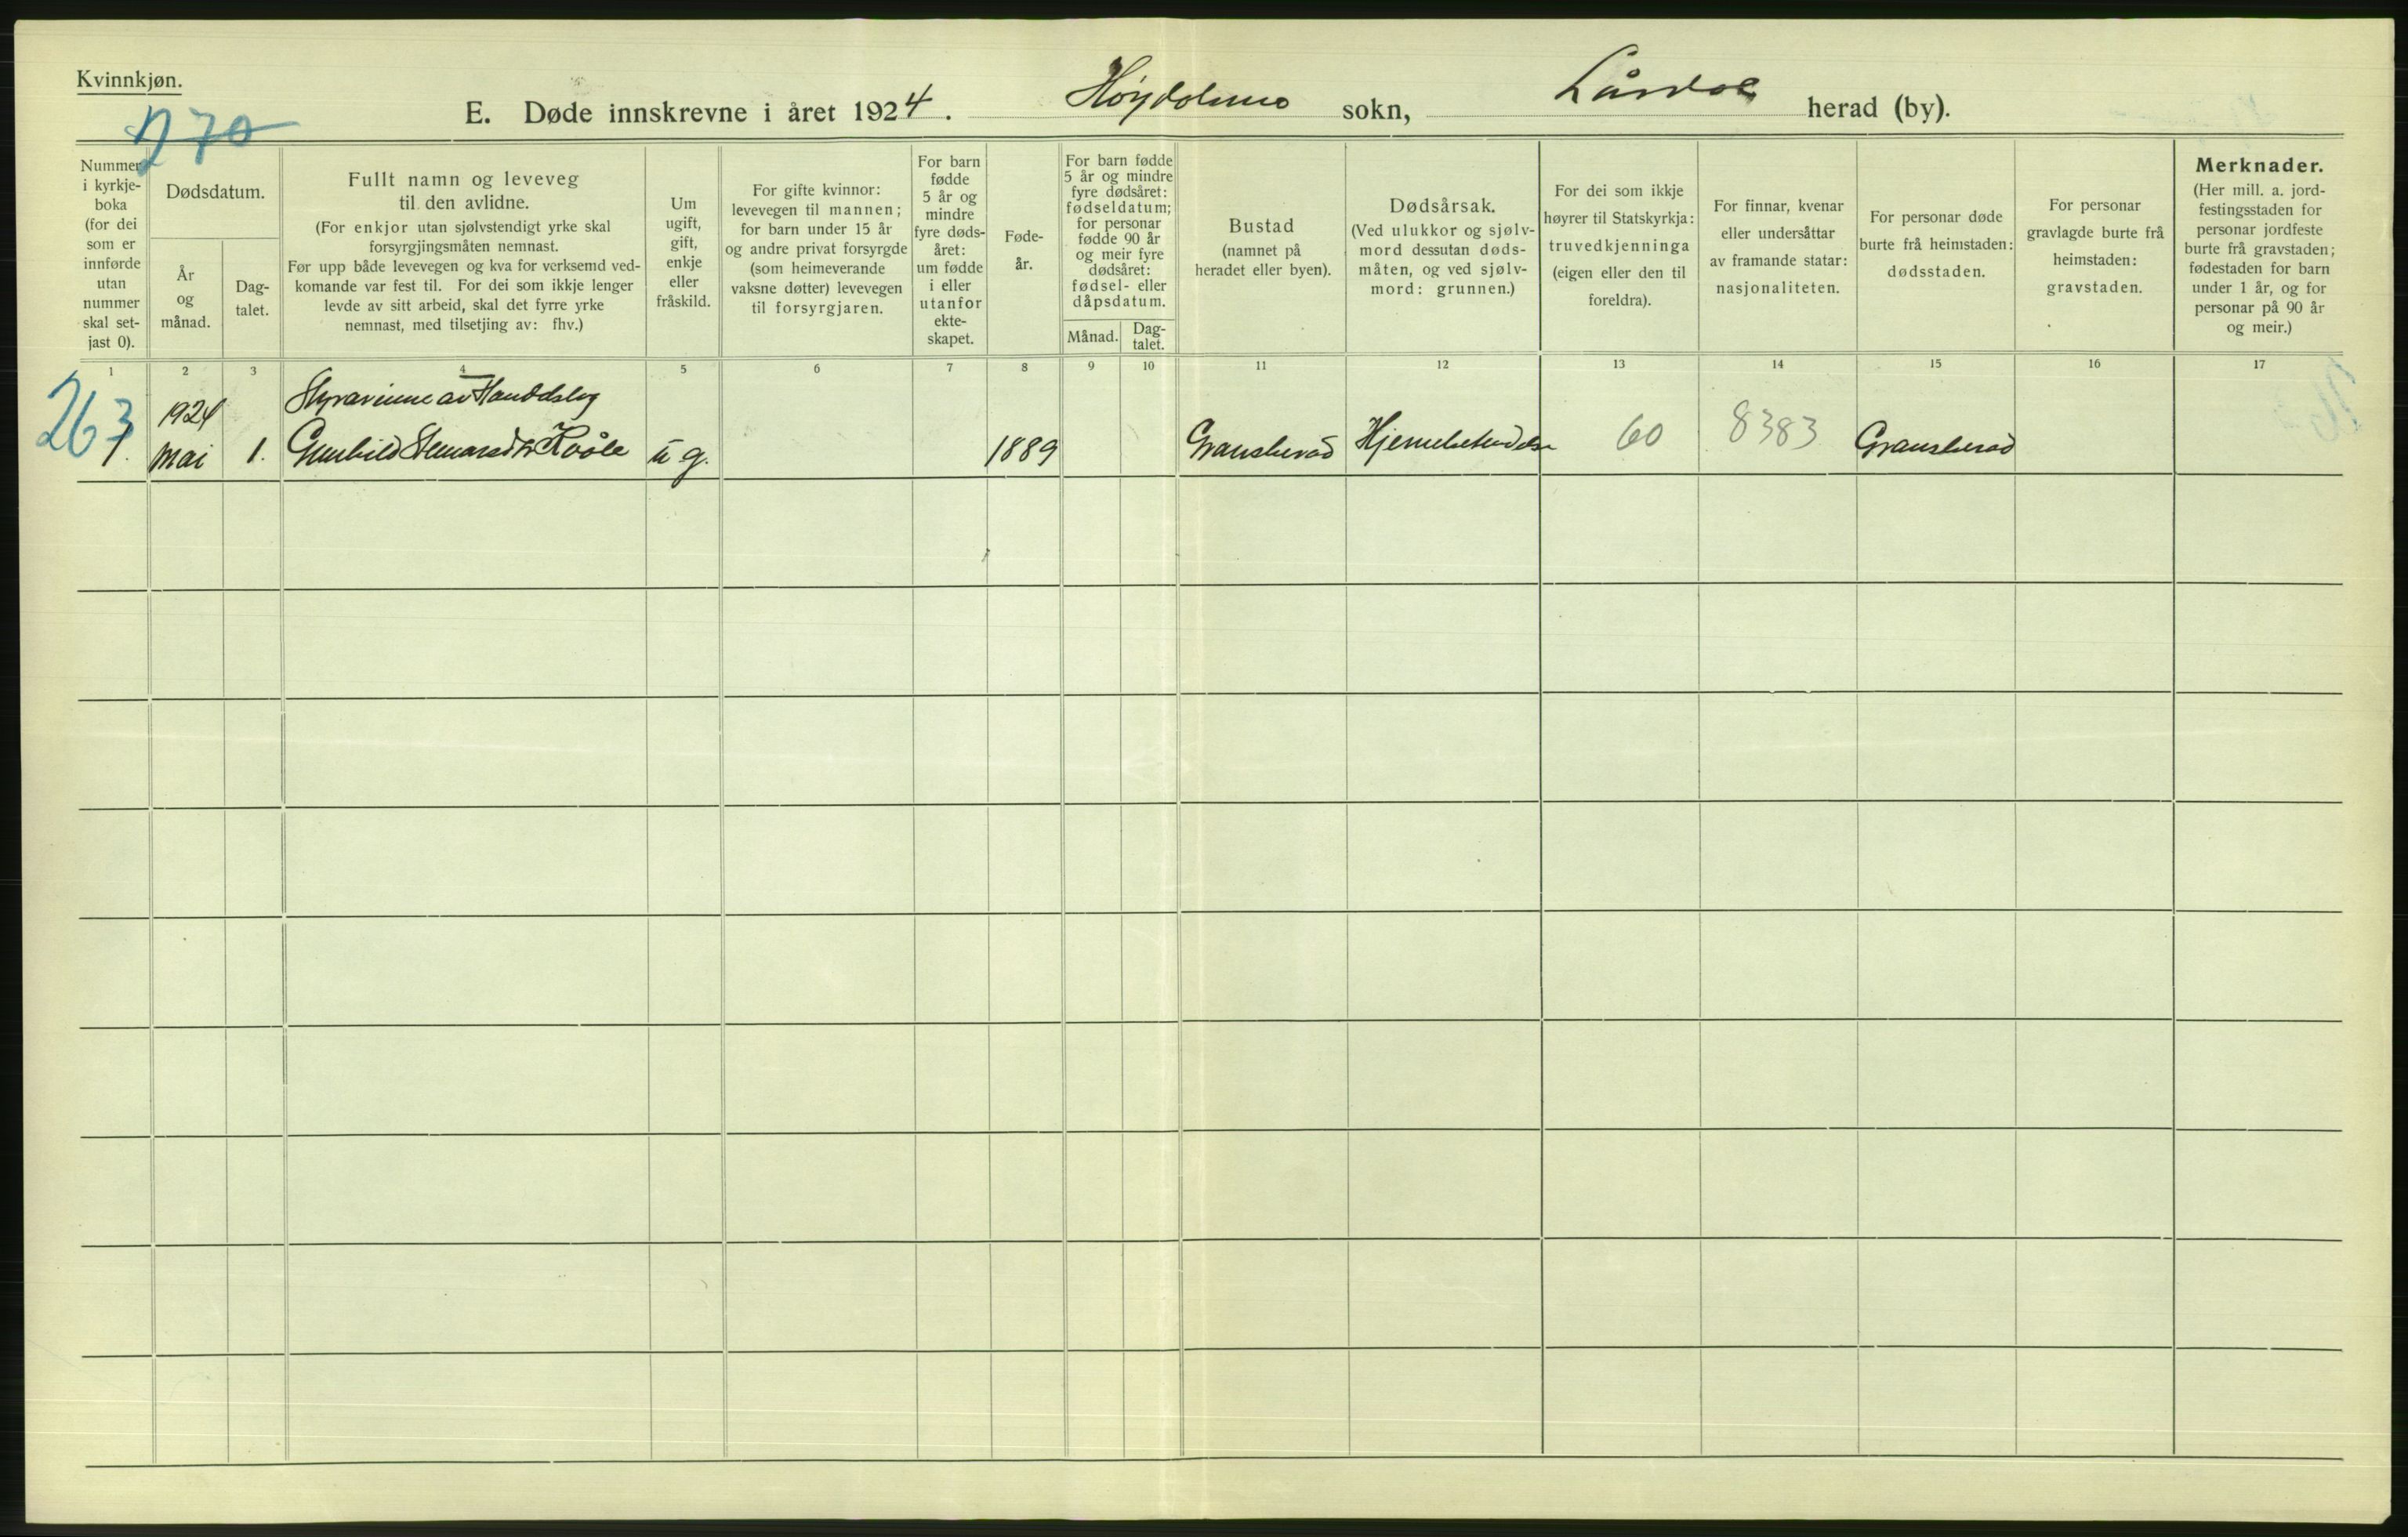 Kvinnkjøn.
E. Døde innskrevne i året 1924. Høydalsmo sokn, Lårdal herad (by).
270
Nummer i kyrkje-boka (for dei som er innførde utan nummer skal set-jast 0).
Dødsdatum.
År og månad.
Dag-talet.
Fullt namn og leveveg til den avlidne.
(For enkjor utan sjølvstendigt yrke skal forsyrgjingsmåten nemnast.
Før upp både levevegen og kva for verksemd ved-komande var fest til. For dei som ikkje lenger levde av sitt arbeid, skal det fyrre yrke nemnast, med tilsetjing av: fhv.)
Um ugift, gift, enkje eller fråskild.
For gifte kvinnor: levevegen til mannen; for barn under 15 år og andre privat forsyrgde (som heimeverande vaksne døtter) levevegen til forsyrgjaren.
For barn fødde 5 år og mindre fyre døds-året: um fødde i eller utanfor ekte-skapet.
Føde-år.
For barn fødde 5 år og mindre fyre dødsåret: fødseldatum; for personar fødde 90 år og meir fyre dødsåret: fødsel- eller dåpsdatum.
Månad.
Dag-talet.
Bustad
(namnet på heradet eller byen).
Dødsårsak.
(Ved ulukkor og sjølv-mord dessutan døds-måten, og ved sjølv-mord: grunnen.)
For dei som ikkje høyrer til Statskyrkja: truvedkjenninga (eigen eller den til foreldra).
For finnar, kvenar eller undersåttar av framande statar: nasjonaliteten.
For personar døde burte frå heimstaden: dødsstaden.
For personar gravlagde burte frå heimstaden: gravstaden.
Merknader.
(Her mill. a. jord-festingsstaden for personar jordfeste burte frå gravstaden; fødestaden for barn under 1 år, og for personar på 90 år og meir.)
1 2 3 4 5 6 7 8 9 10 11 12 13 14 15 16 17
263
1924 Styrarinne av
1. mai 1. Gunhild u g. 1889 Gransherad 60 8383 Gransherad